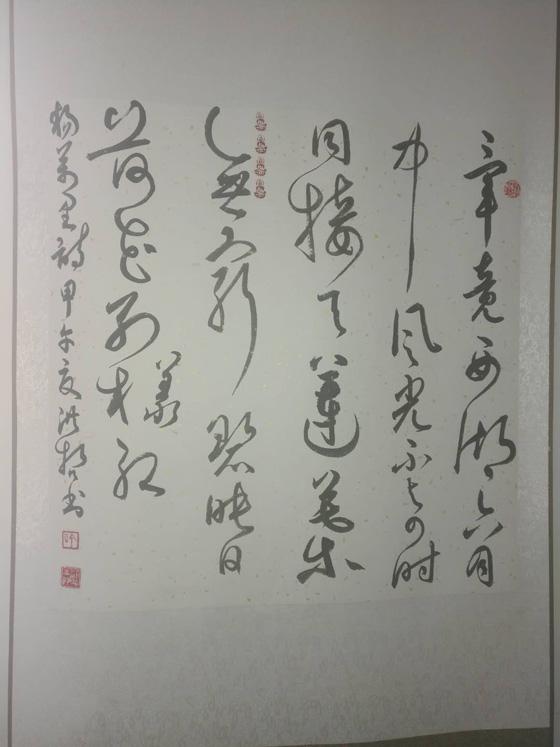 畢竟西湖六月
中风光不与四时
同接天蓮葉
無窮碧映日
荷花别樣红
楊萬里詩甲午夏洪书